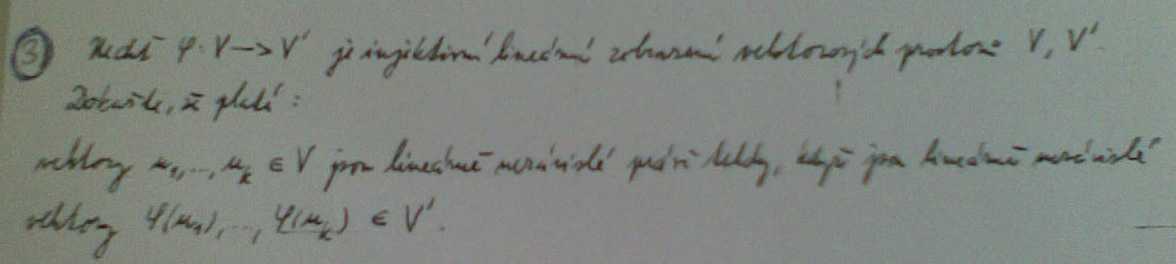 ③ Nechť φ: V → V' je injektivní lineární zobrazení vektorových prostorů V, V'.
Dokažte, že platí:
vektory u₁,...,uₖ ∈ V jsou lineárně nezávislé právě tehdy, když jsou lineárně nezávislé
vektory φ(u₁),..., φ(uₖ) ∈ V'.